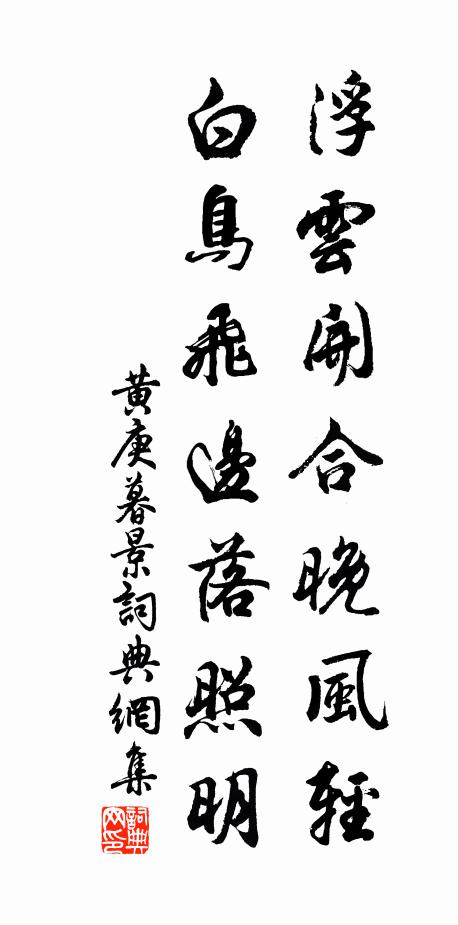 浮雲開合晚風輕
白鳥飛邊落照明
黃庚暮景詞典網集
詞典网印